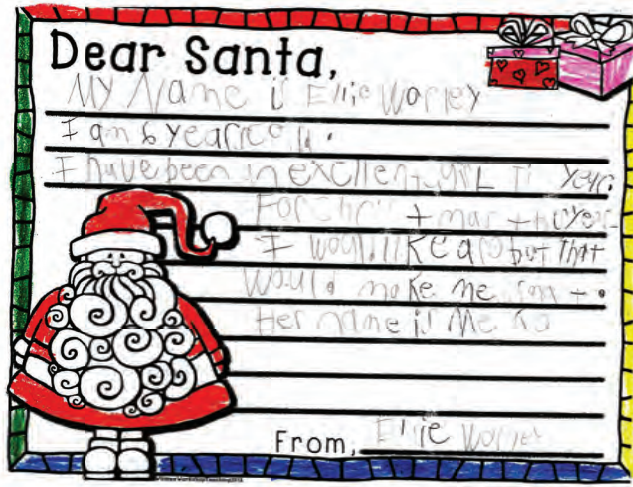 Dear Santa,
My Name is Ellie Worley
I am 6 years old.
I have been an excellent girl year.
For year
I would like a robot that
would make me
Her name is Me
From, Ellie Worley